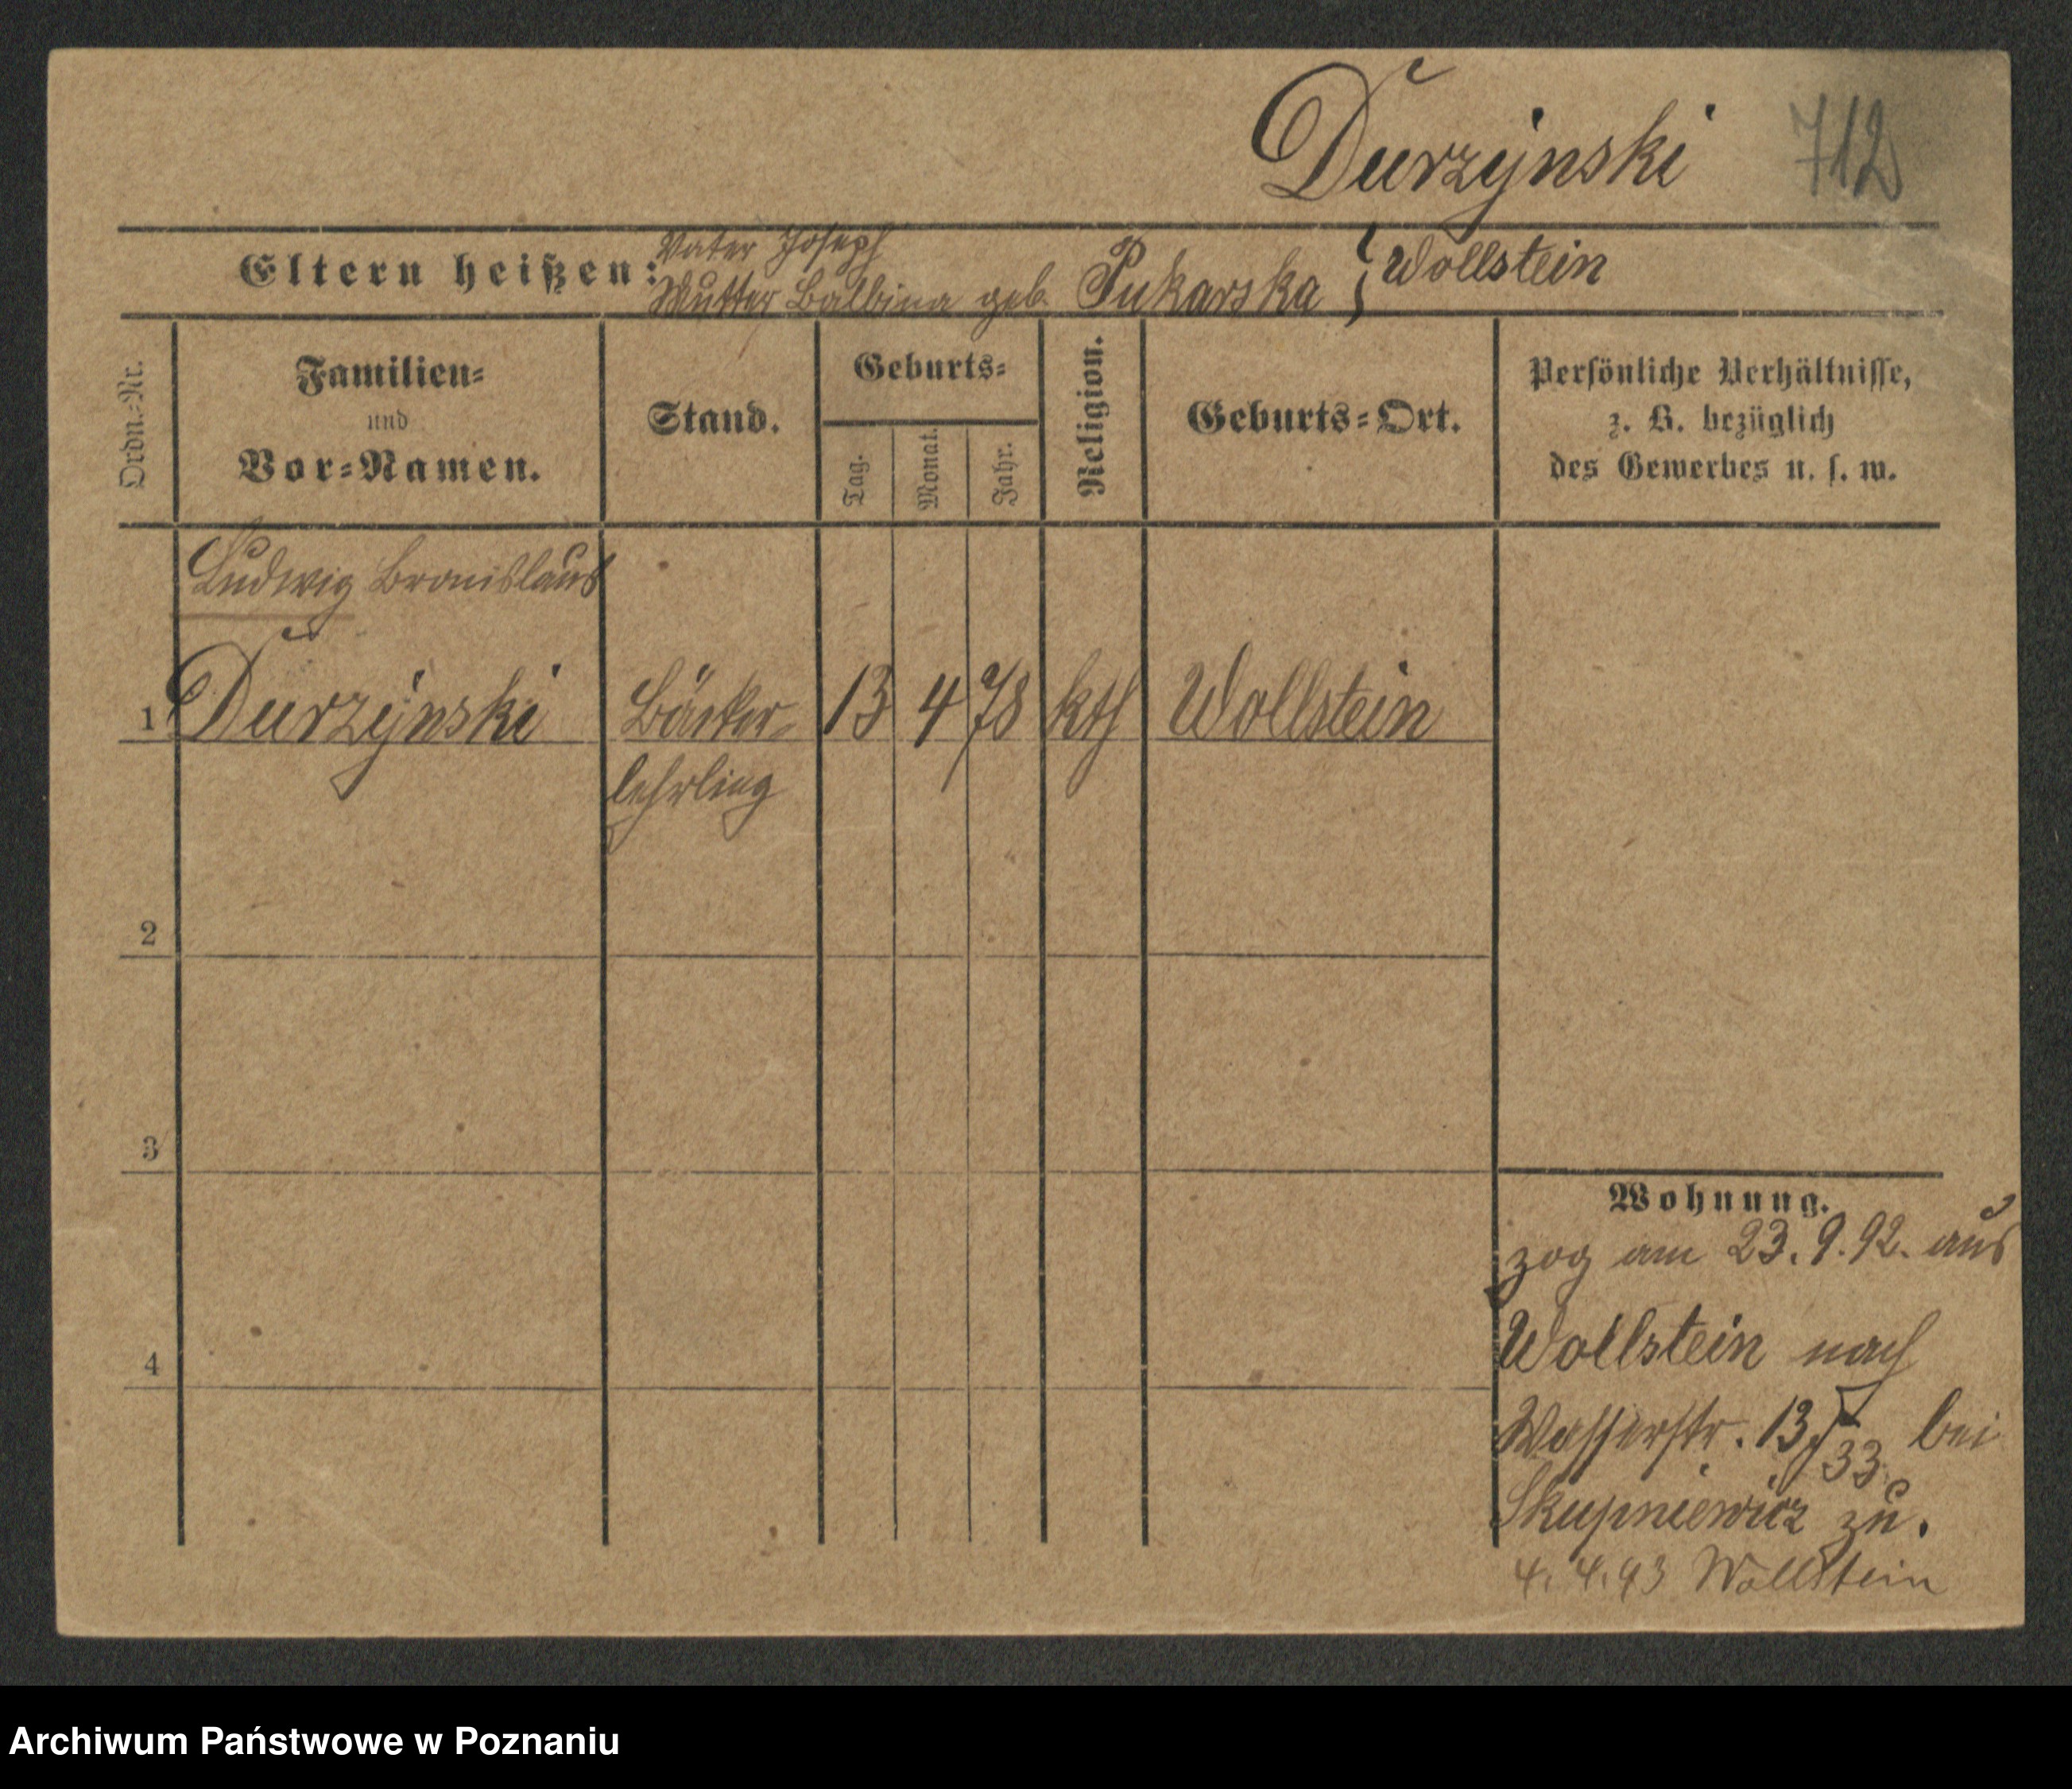 Durzÿnski 712
Eltern heißen: Vater Joseph
Mutter Balbina geb. Pukarska } Wollstein
Ordn.-Nr.
Familien-
und
Vor-Namen.
Stand.
Geburts-
Tag.
Monat.
Jahr.
Religion.
Geburts-Ort.
Persönliche Verhältnisse,
z. B. bezüglich
des Gewerbes u. s. w.
Ludwig Bronislaus
1 Durzÿnski Bäcker- 13 4 78 kth Wollstein
lehrling
2
3
4
Wohnung.
zog am 23.9.92. aus
Wollstein nach
Wasserstr. 13/33 bei
Skupniewicz zu.
4.4.93 Wollstein
Archiwum Państwowe w Poznaniu